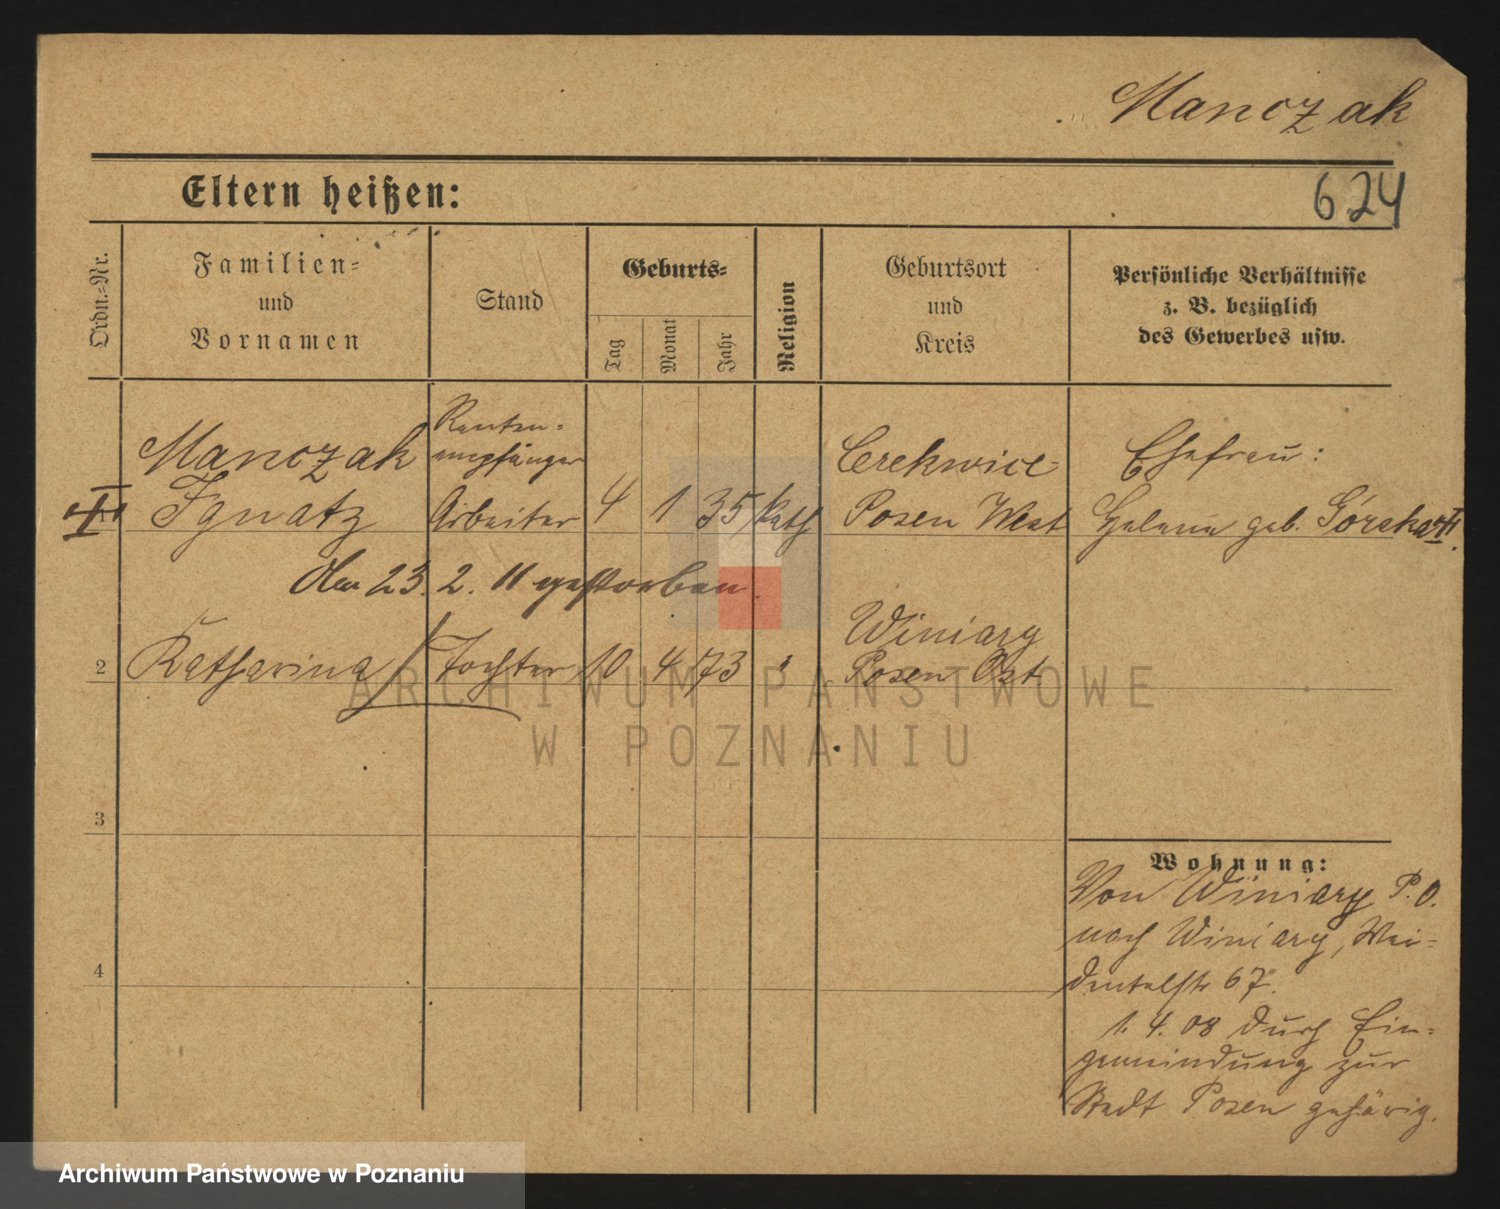 Manczak
Eltern heißen:
624
Ordn.-Nr.
Familien-
und
Vornamen
Stand
Geburts-
Tag
Monat
Jahr
Religion
Geburtsort
und
Kreis
Persönliche Verhältnisse
z. B. bezüglich
des Gewerbes usw.
Manczak
Ignatz
Renten-
empfänger
Arbeiter
4 1 35 kath
Cerekwice
Posen West
Ehefrau:
Helena geb. Górska
Am 23. 2. 11 gestorben.
2
Katharina
Tochter
10 4 73
Winiary
Posen Ost
3
4
Wohnung:
Von Winiary P.O.
nach Winiary, Wei-
dentalstr 67.
1. 4. 08 durch Ein-
gemeindung zur
Stadt Posen gehörig.
ARCHIWUM PAŃSTWOWE
W POZNANIU
Archiwum Państwowe w Poznaniu